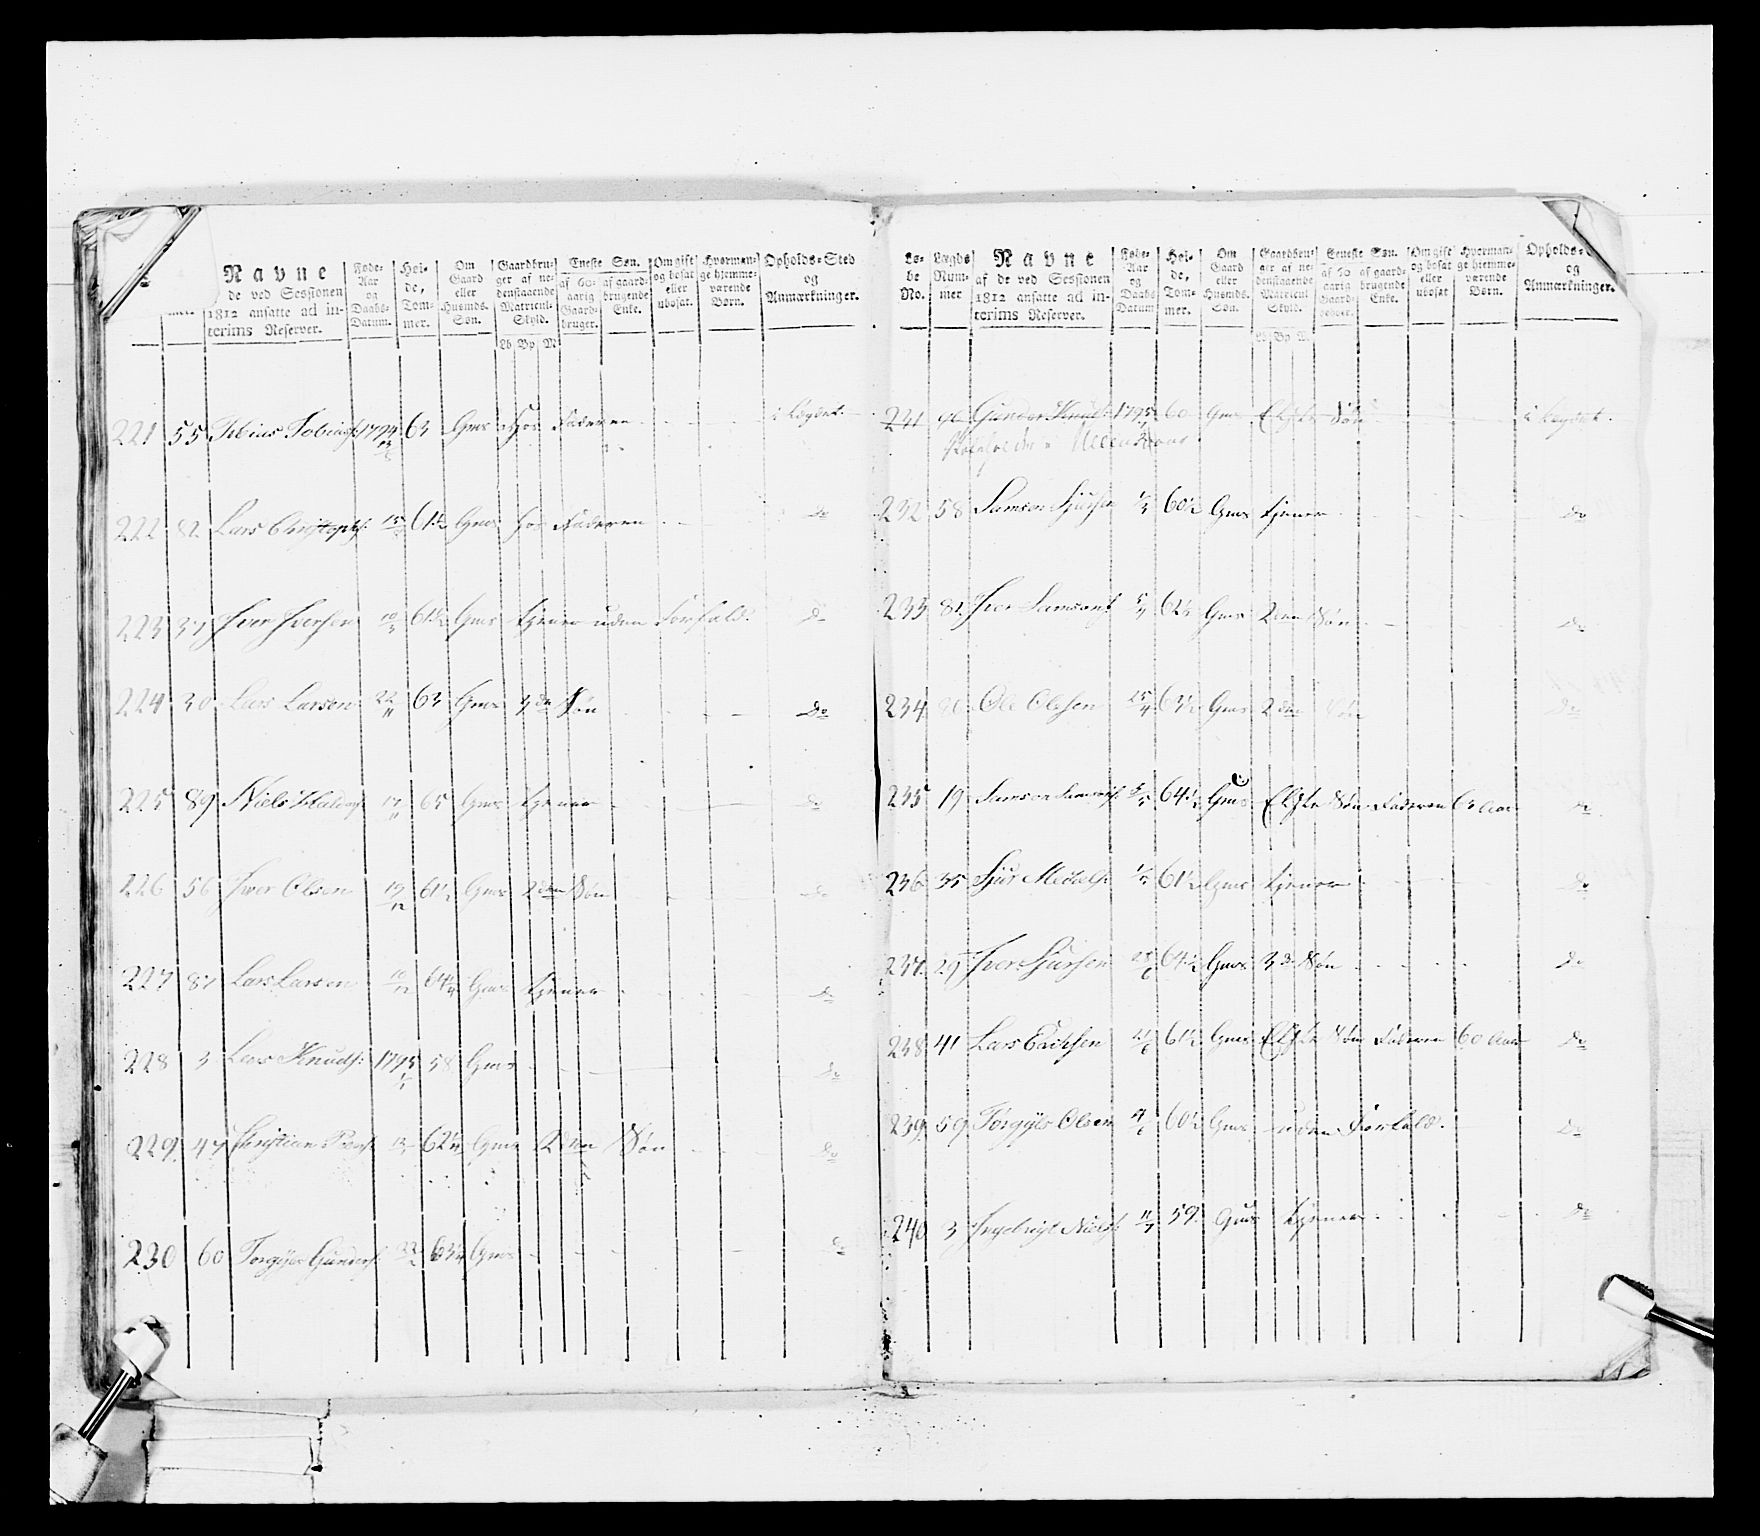 Navne
de ved Sessionen
1812 ansatte ad in-
terims Reserver.
Føde-
Aar
og
Daabs-
Datum.
Høi-
de,
Tom-
mer.
Om
Gaard
eller
Husmds.
Søn.
Gaardbru-
ger af ne-
denstaaende
Matrcul-
Skyld.
Lb Bp M
Eneste Søn.
af 60-
aarig
Gaard-
bruger.
af gaard-
brugende
Enke.
Om gift
og bosat
eller
ubosat.
Hvorman-
ge hjemme-
værende
Børn.
Opholds-Sted
og
Anmærkninger.
221 55 Tobias Tobias: 1794 63 Gms Hos Faderen i Lægdet.
222 82 Lars Christoph: 61½ Gms hos Faderen do
223 37 Iver Iversen 61½ Gms tjener uden Forfald. do
224 30 Lars Larsen 22/11 63 Gms 3de Søn do
225 89 Niels 17/11 65 Gms tjener do
226 56 Iver Olsen 19/12 61½ Gms 2den Søn do
227 87 Lars Larsen 64 Gms tjener do
228 3 Lars Knuds: 1795 58 Gms do
229 47 Christian 62 Gms 2den Søn do
230 60 Torgiils Gunders: 63 Gms do
Lø-
be
No.
Lægds
Num-
mer
Navne
af de ved Sessionen
1812 ansatte ad in-
terims Reserver.
Føde-
Aar
og
Daabs
Datum
Høi-
de,
Tom-
mer.
Om
Gaard
eller
Husmds.
Søn.
Gaardbru-
ger af ne-
denstaaende
Matrcul
Skyld.
Eneste Søn.
af 60
aarig
Gaard-
af gaard-
brugende
Enke.
Om gift
og bosat
eller
ubosat
Hvorman-
ge hjemme-
værende
Børn.
Opholds-
og
Anmærkninger.
231 Gunder Knuds: 1795 60 Gms Elste Søn i Lægdet.
232 58 Samson Sjursen 60½ Gms tjener do
233 82 Iver Samsons: 62½ Gms 2den Søn do
234 Ole Olesen 25/4 63½ Gms 2den Søn do
235 19 Samson Samsons: 64½ Gms Elste Søn Faderen 63 Aar do
236 35 Sjur 61½ Gms tjener do
237 29 Iver Sjursen 64½ Gms 3de Søn do
238 41 Lars 61½ Gms Elste Søn Faderen 60 Aar do
239 59 Torgiils Olsen 60½ Gms uden Forfald. do
240 3 Ingebrigt Niels: 59. Gms tjener do